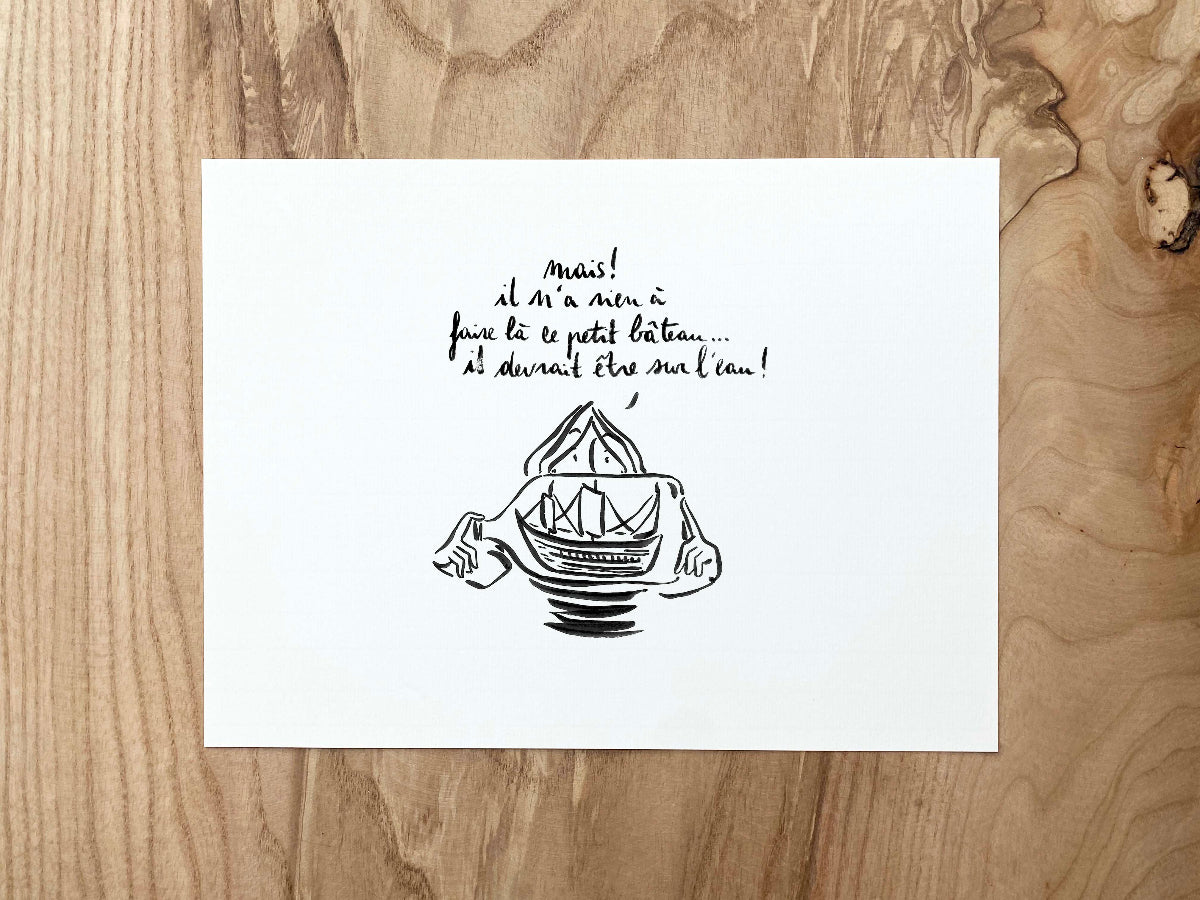 mais!
il n'a rien à
faire là ce petit bâteau...
il devrait être sur l'eau!